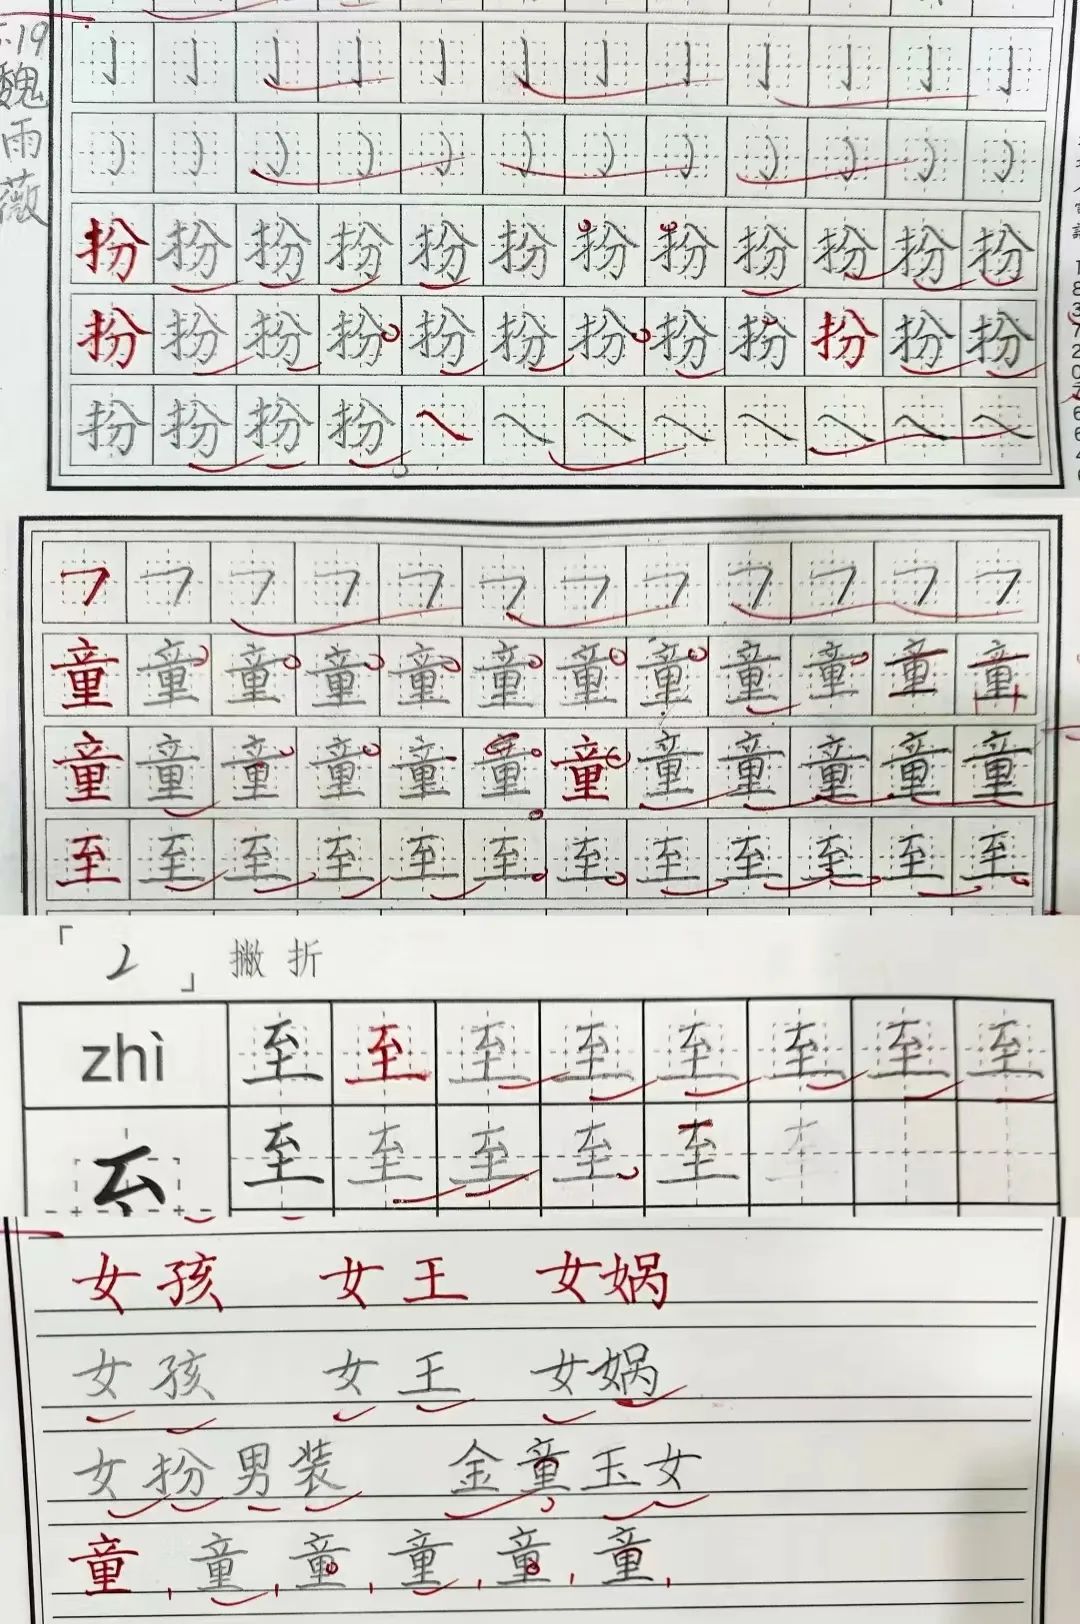 19
魏雨薇
扮 扮 扮 扮 扮 扮 扮 扮 扮 扮 扮 扮
扮 扮 扮 扮 扮 扮 扮 扮 扮 扮 扮 扮
扮 扮 扮 扮
童 童 童 童 童 童 童 童 童 童 童 童
童 童 童 童 童 童 童 童 童 童 童 童
至 至 至 至 至 至 至 至 至 至 至 至
「2」 撇折
zhì 至 至 至 至 至 至 至 至
至 至 至 至 至
女孩 女王 女娲
女孩 女王 女娲
女扮男装 金童玉女
童 童 童 童 童 童